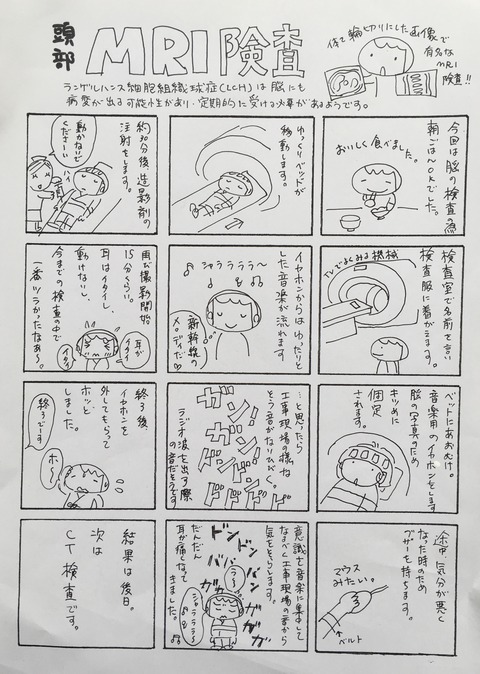 頭部
MRI険査
体を輪切りにした画像で
有名な
MRI
険査!!
ランゲルハンス細胞組織球症(LCH)は脳にも
病変が出る可能性があり、定期的に受ける必要があるようです。
今回は脳の検査の為
朝ごはんOKでした。
おいしく食べました。
検査室で名前を言い
検査服に着がえます。
TVでよくみる機械
ベットにあおむけ。
音楽用のイヤホンをします
脳の写真のため
キツめに
固定
されます。
途中、気分が悪く
なった時のため
ブザーを持ちます。
マウス
みたい。
ベルト
ゆっくりベッドが
移動します。
イヤホンからはゆったりと
した音楽が流れます
シャララララ〜
新幹線の
メロディだ
…と思ったら
工事現場の様な
そう音がなりひびく。
ガン!ガン!
ガンガン!
ドドドドド
ラジオ波を出す際
の音だそうです
意識を音楽に集中して
なるべく工事現場の音から
気をそらします。
ドンドンバンバン
ガガガガガ
う〜
シャララララ〜
だんだん
耳が痛くなって
きました。
約30分後、造影剤の
注射をします。
動かないで
ください
ハイ
再び撮影開始
15分くらい。
耳はイタイし、
動けないし、
今までの検査の中で
一番ツラかったなぁ〜。
耳が
イタイ
イタイ
終了後
イヤホンを
外してもらって
ホッと
しました。
終了です
ホ〜
結果は後日。
次は
CT検査です。